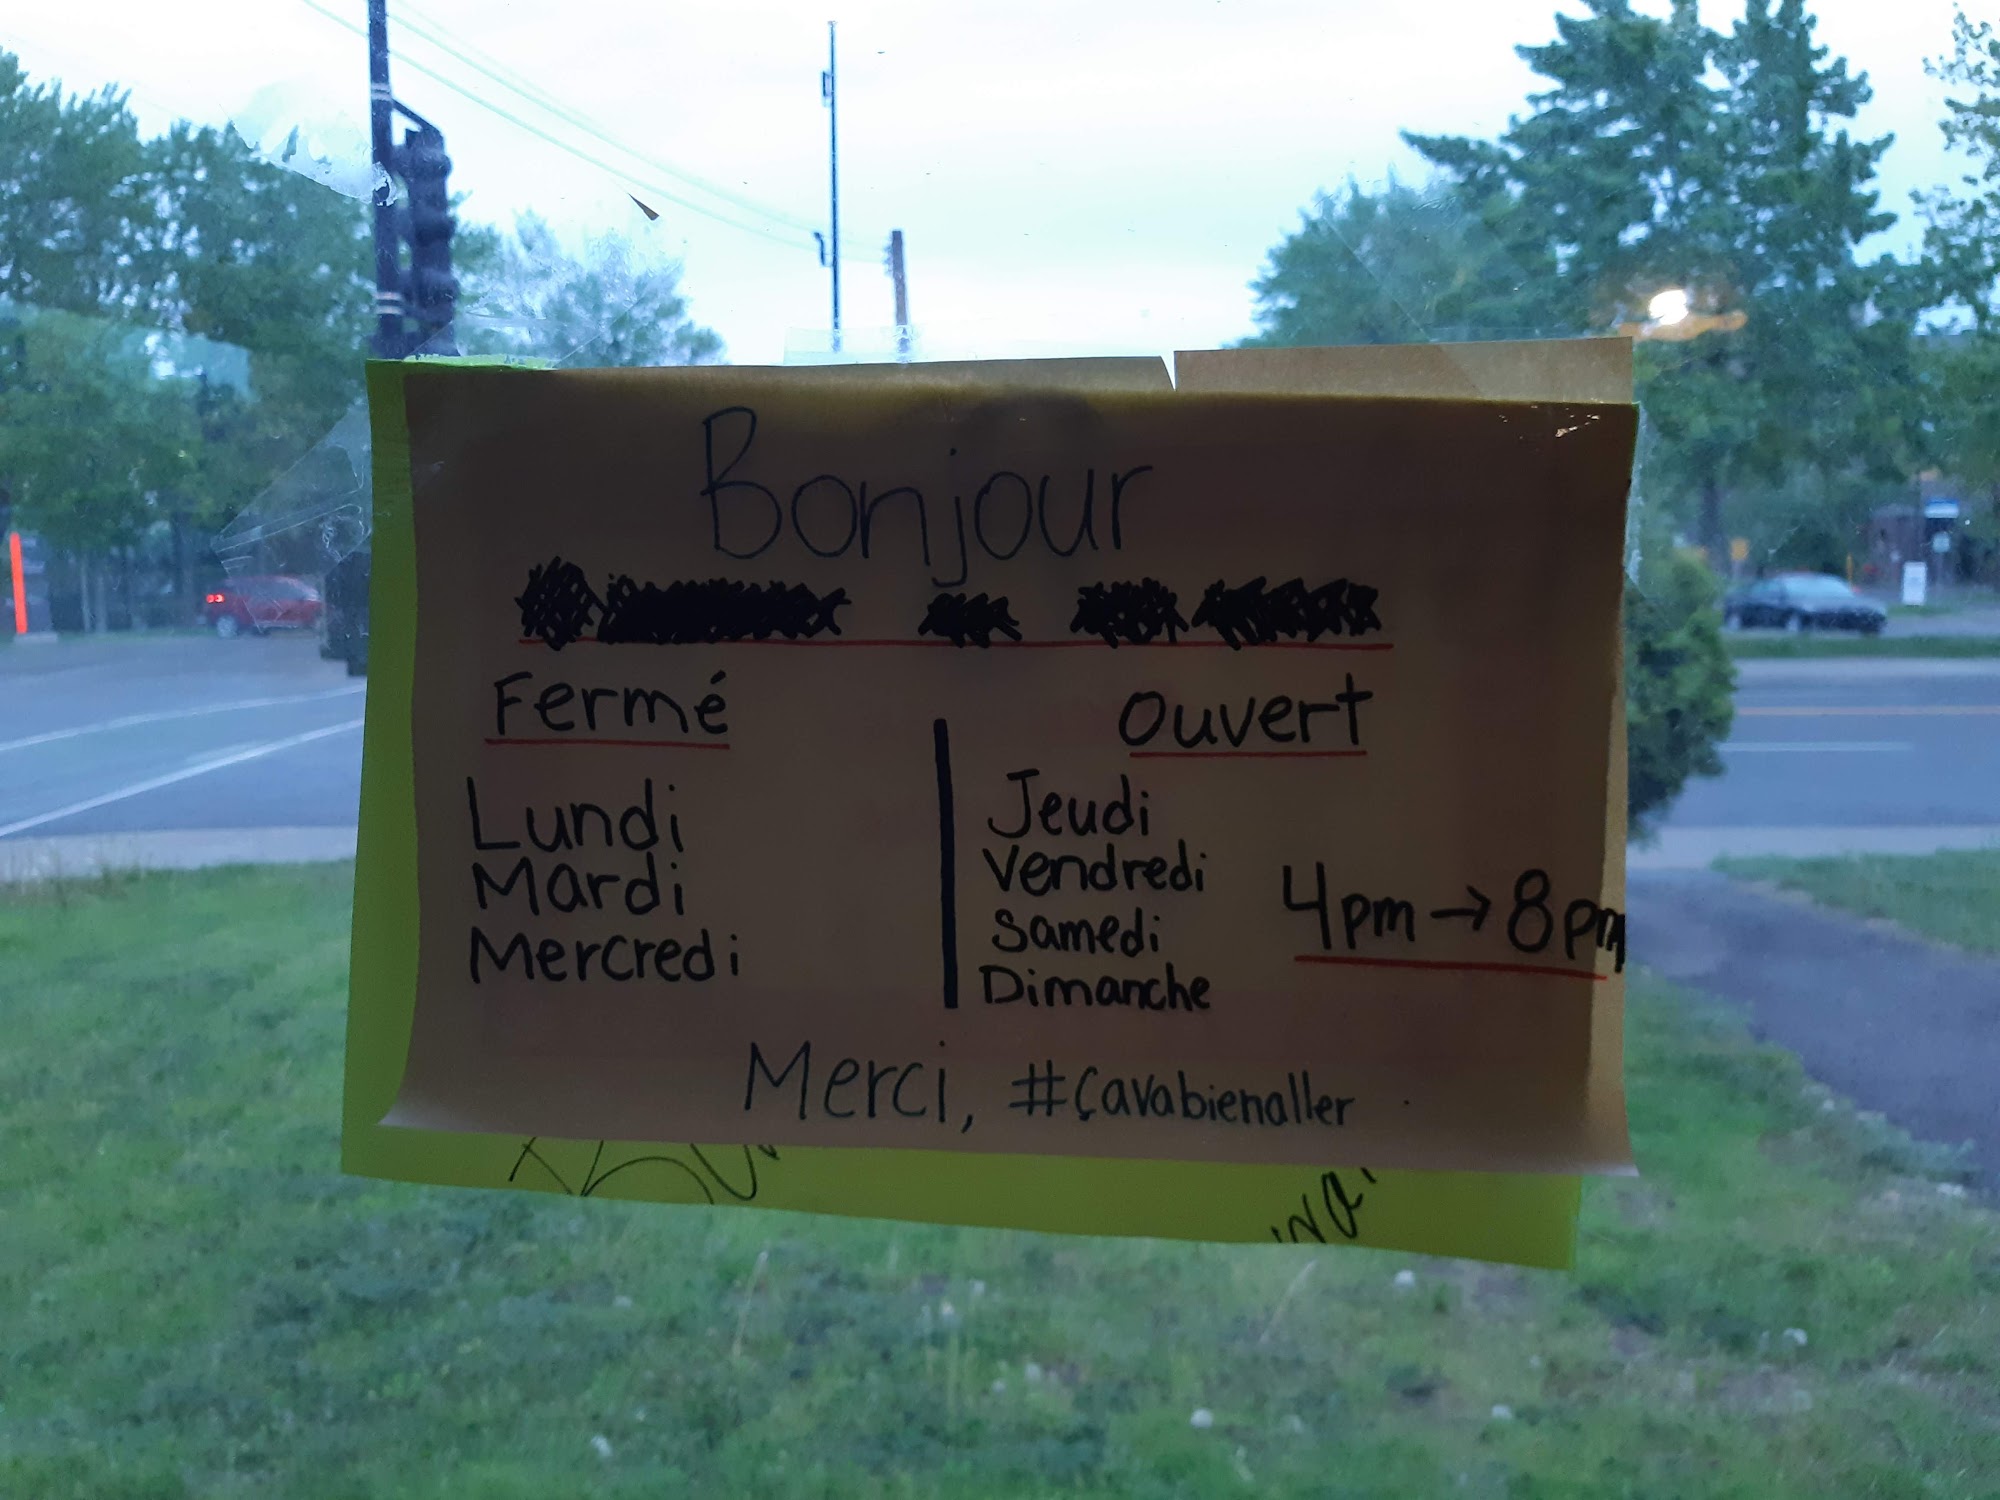 Bonjour
Fermé
Lundi
Mardi
Mercredi
ouvert
Jeudi
Vendredi
Samedi
Dimanche
4pm → 8pm
Merci, #çavabienaller